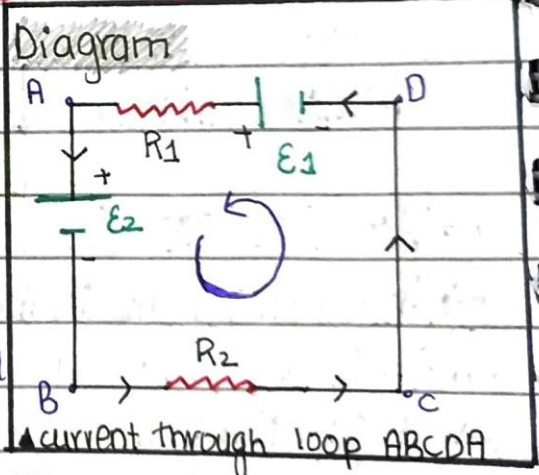 Diagram
A
D
R1
+
-
ε1
+
ε2
-
R2
B
C
▲current through loop ABCDA